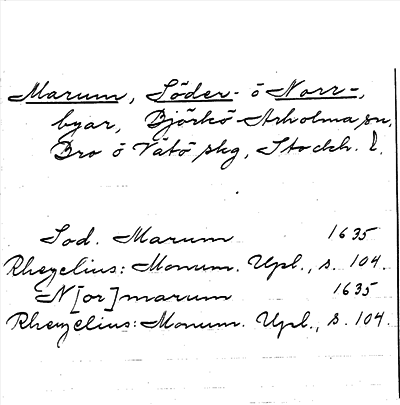 Marum, Söder- o Norr-,
byar, Björkö-Arholma sn,
Bro o Vätö skg, Stockh. l.
Sod. Marum 1635
Rhezelius: Monum. Upl., s. 104.
N[or]marum 1635
Rhezelius: Monum. Upl., s. 104.